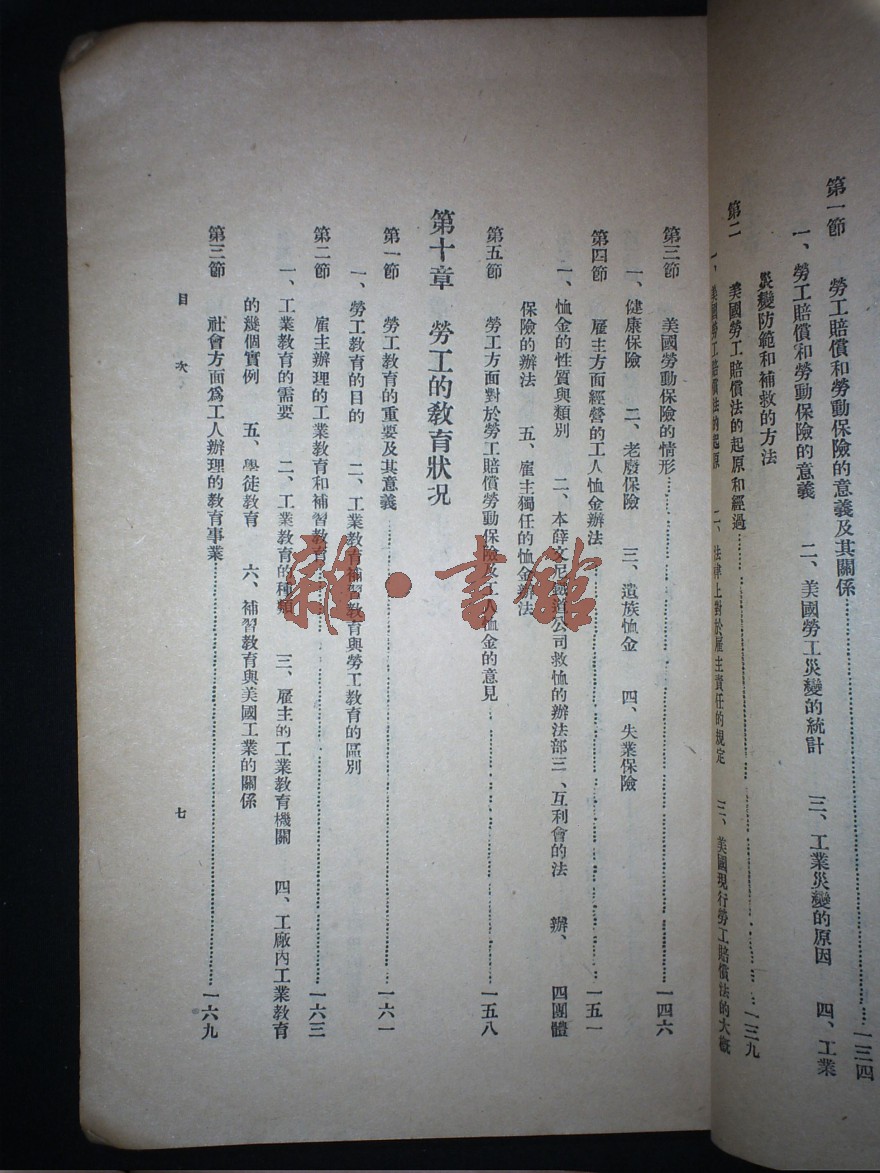 第一節 勞工賠償和勞動保險的意義及其關係……一三四
一、勞工賠償和勞動保險的意義 二、美國勞工災變的統計 三、工業災變的原因 四、工業
災變防範和補救的方法
第二 美國勞工賠償法的起原和經過……一三九
一、美國勞工賠償法的起原 二、法律上對於雇主責任的規定 三、美國現行勞工賠償法的大概
第三節 美國勞動保險的情形……一四六
一、健康保險 二、老廢保險 三、遺族恤金 四、失業保險
第四節 雇主方面經營的工人恤金辦法……一五一
一、恤金的性質與類別 二、本薛文尼鐵道公司救恤的辦法部三、互利會的法 辦、 四團體
保險的辦法 五、雇主獨任的恤金辦法
第五節 勞工方面對於勞工賠償勞動保險及工人恤金的意見……一五八
第十章 勞工的教育狀況
第一節 勞工教育的重要及其意義……一六一
一、勞工教育的目的 二、工業教育補習教育與勞工教育的區別
第二節 雇主辦理的工業教育和補習教育……一六三
一、工業教育的需要 二、工業教育的種類 三、雇主的工業教育機關 四、工廠內工業教育
的幾個實例 五、學徒教育 六、補習教育與美國工業的關係
第三節 社會方面為工人辦理的教育事業……一六九
目 次
七
雜·書館